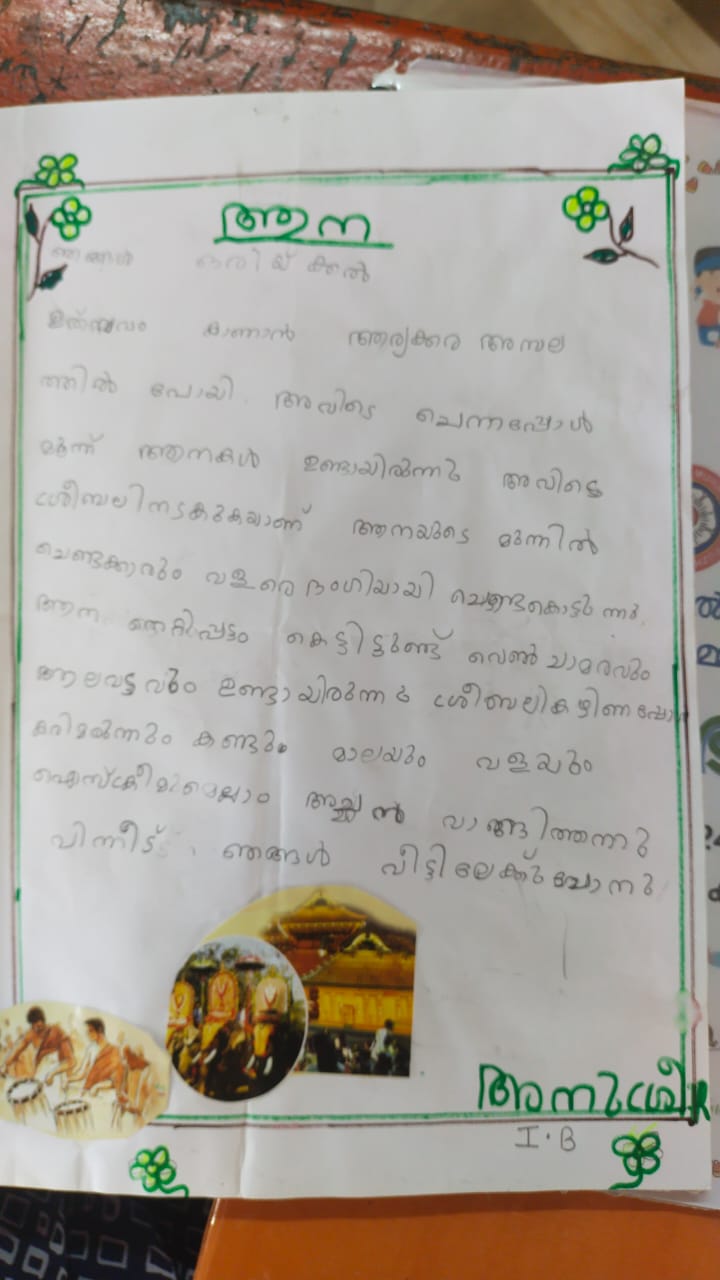 ആന
ഞങ്ങൾ ഒരിയ്ക്കൽ
ഉത്സവം കാണാൻ ആര്യക്കര അമ്പല
ത്തിൽ പോയി. അവിടെ ചെന്നപ്പോൾ
മൂന്ന് ആനകൾ ഉണ്ടായിരുന്നു അവിടെ
ശീബലിനടകുകയാണ് ആനയുടെ മുന്നിൽ
ചെണ്ടക്കാരും വളരെ ഭംഗിയായി ചെണ്ടകൊട്ടുന്നു
ആന നെറ്റിപ്പട്ടം കെട്ടിട്ടുണ്ട് വെൺചാമരവും
ആലവട്ടവും ഉണ്ടായിരുന്നു ശീബലികഴിണപ്പോൾ
കരിമരുന്നും കണ്ടും മാലയും വളയും
ഐസ്ക്രീമുമെല്ലാം അച്ഛൻ വാങ്ങിത്തന്നു
പിന്നീട് ഞങ്ങൾ വീട്ടിലേക്ക് പോന്നു
അനുശ്രീ R
I.B